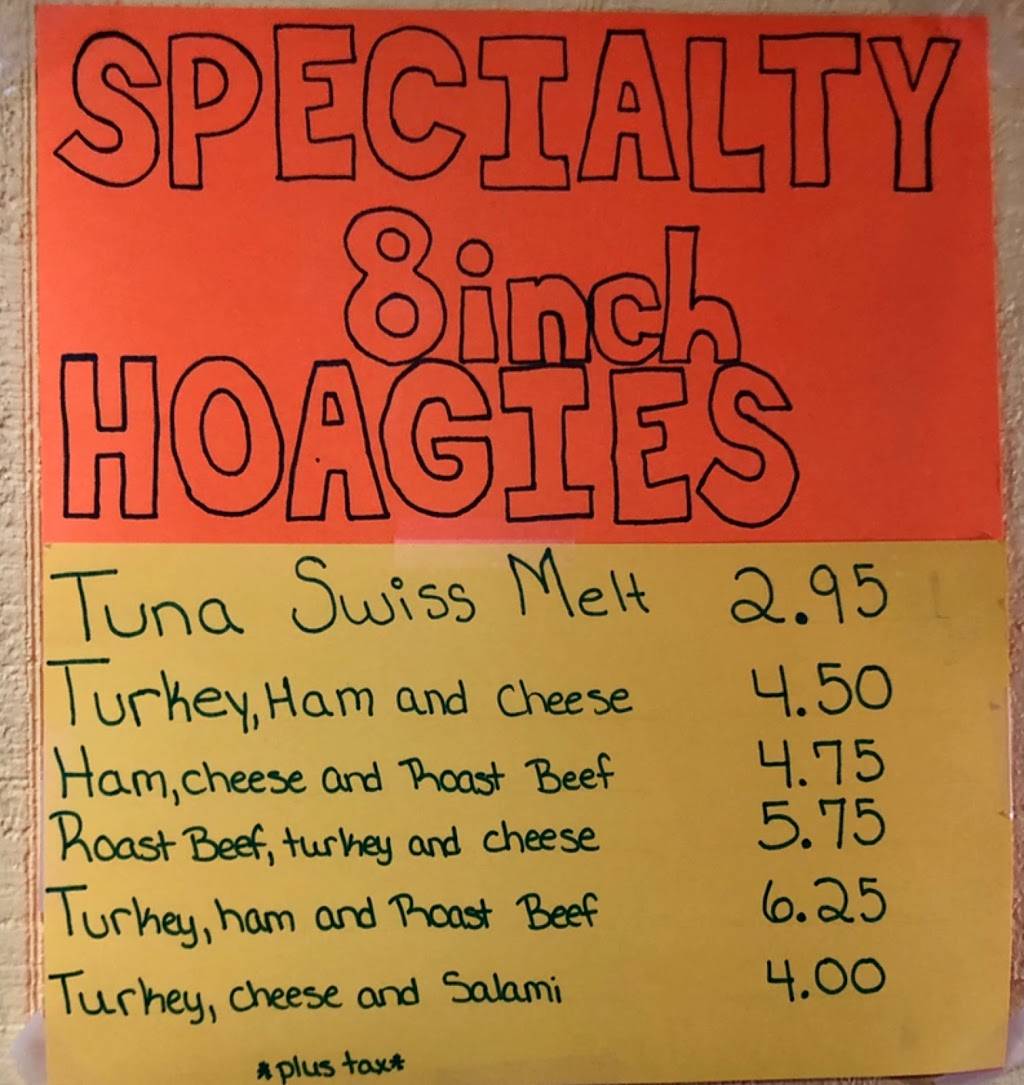 SPECIALTY
8inch
HOAGIES
Tuna Swiss Melt 2.95
Turkey, Ham and cheese 4.50
Ham, cheese and Roast Beef 4.75
Roast Beef, turkey and cheese 5.75
Turkey, ham and Roast Beef 6.25
Turkey, cheese and Salami 4.00
*plus tax*